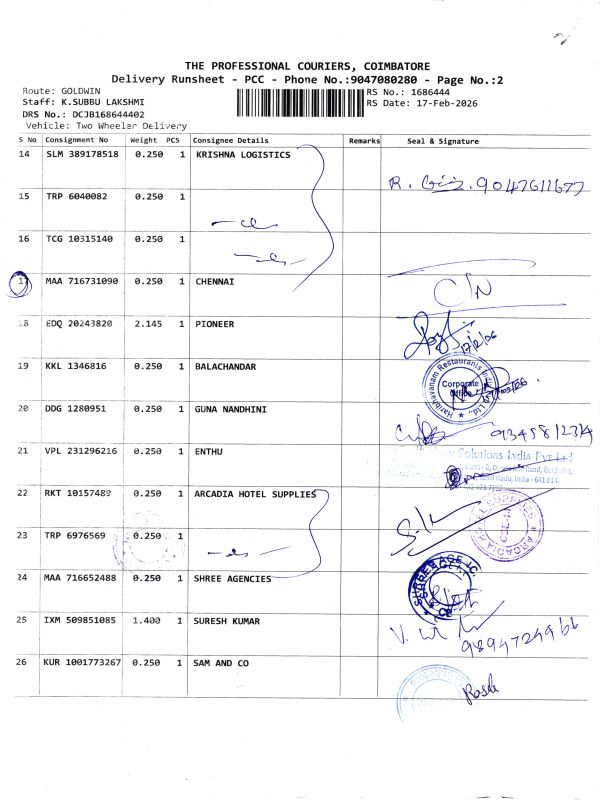 THE PROFESSIONAL COURIERS, COIMBATORE
Delivery Runsheet - PCC - Phone No.:9047080280 - Page No.:2
Route: GOLDWIN
Staff: K.SUBBU LAKSHMI
DRS No.: DCJB168644402
Vehicle: Two Wheeler Delivery
RS No.: 1686444
RS Date: 17-Feb-2026
S No Consignment No Weight PCS Consignee Details Remarks Seal & Signature
14 SLM 389178518 0.250 1 KRISHNA LOGISTICS
R. 9047611677
15 TRP 6040082 0.250 1
16 TCG 10315140 0.250 1
17 MAA 716731090 0.250 1 CHENNAI
C/N
18 EDQ 20243820 2.145 1 PIONEER
19 KKL 1346816 0.250 1 BALACHANDAR
Haribhavanam Restaurants India Pvt. Ltd.,
Corporate Office
20 DDG 1280951 0.250 1 GUNA NANDHINI
21 VPL 231296216 0.250 1 ENTHU
Solutions India Pvt Ltd
Tamil Nadu, India - 641 014.
22 RKT 10157489 0.250 1 ARCADIA HOTEL SUPPLIES
ARCADIA HOTEL SUPPLIES
23 TRP 6976569 0.250 1
24 MAA 716652488 0.250 1 SHREE AGENCIES
25 IXM 509851085 1.400 1 SURESH KUMAR
9894724966
26 KUR 1001773267 0.250 1 SAM AND CO